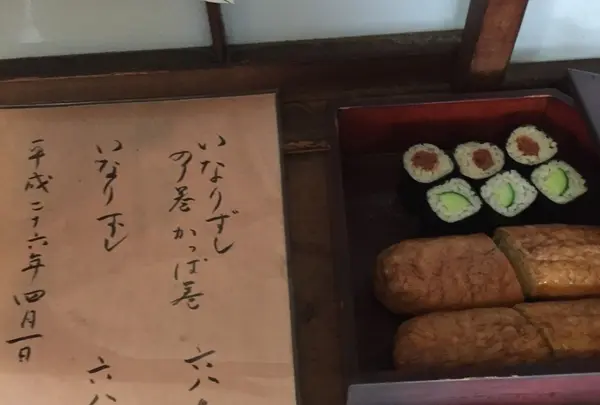 いなりずし
のり巻 かっぱ巻 六八
いなりずし 六八
平成二十六年四月一日